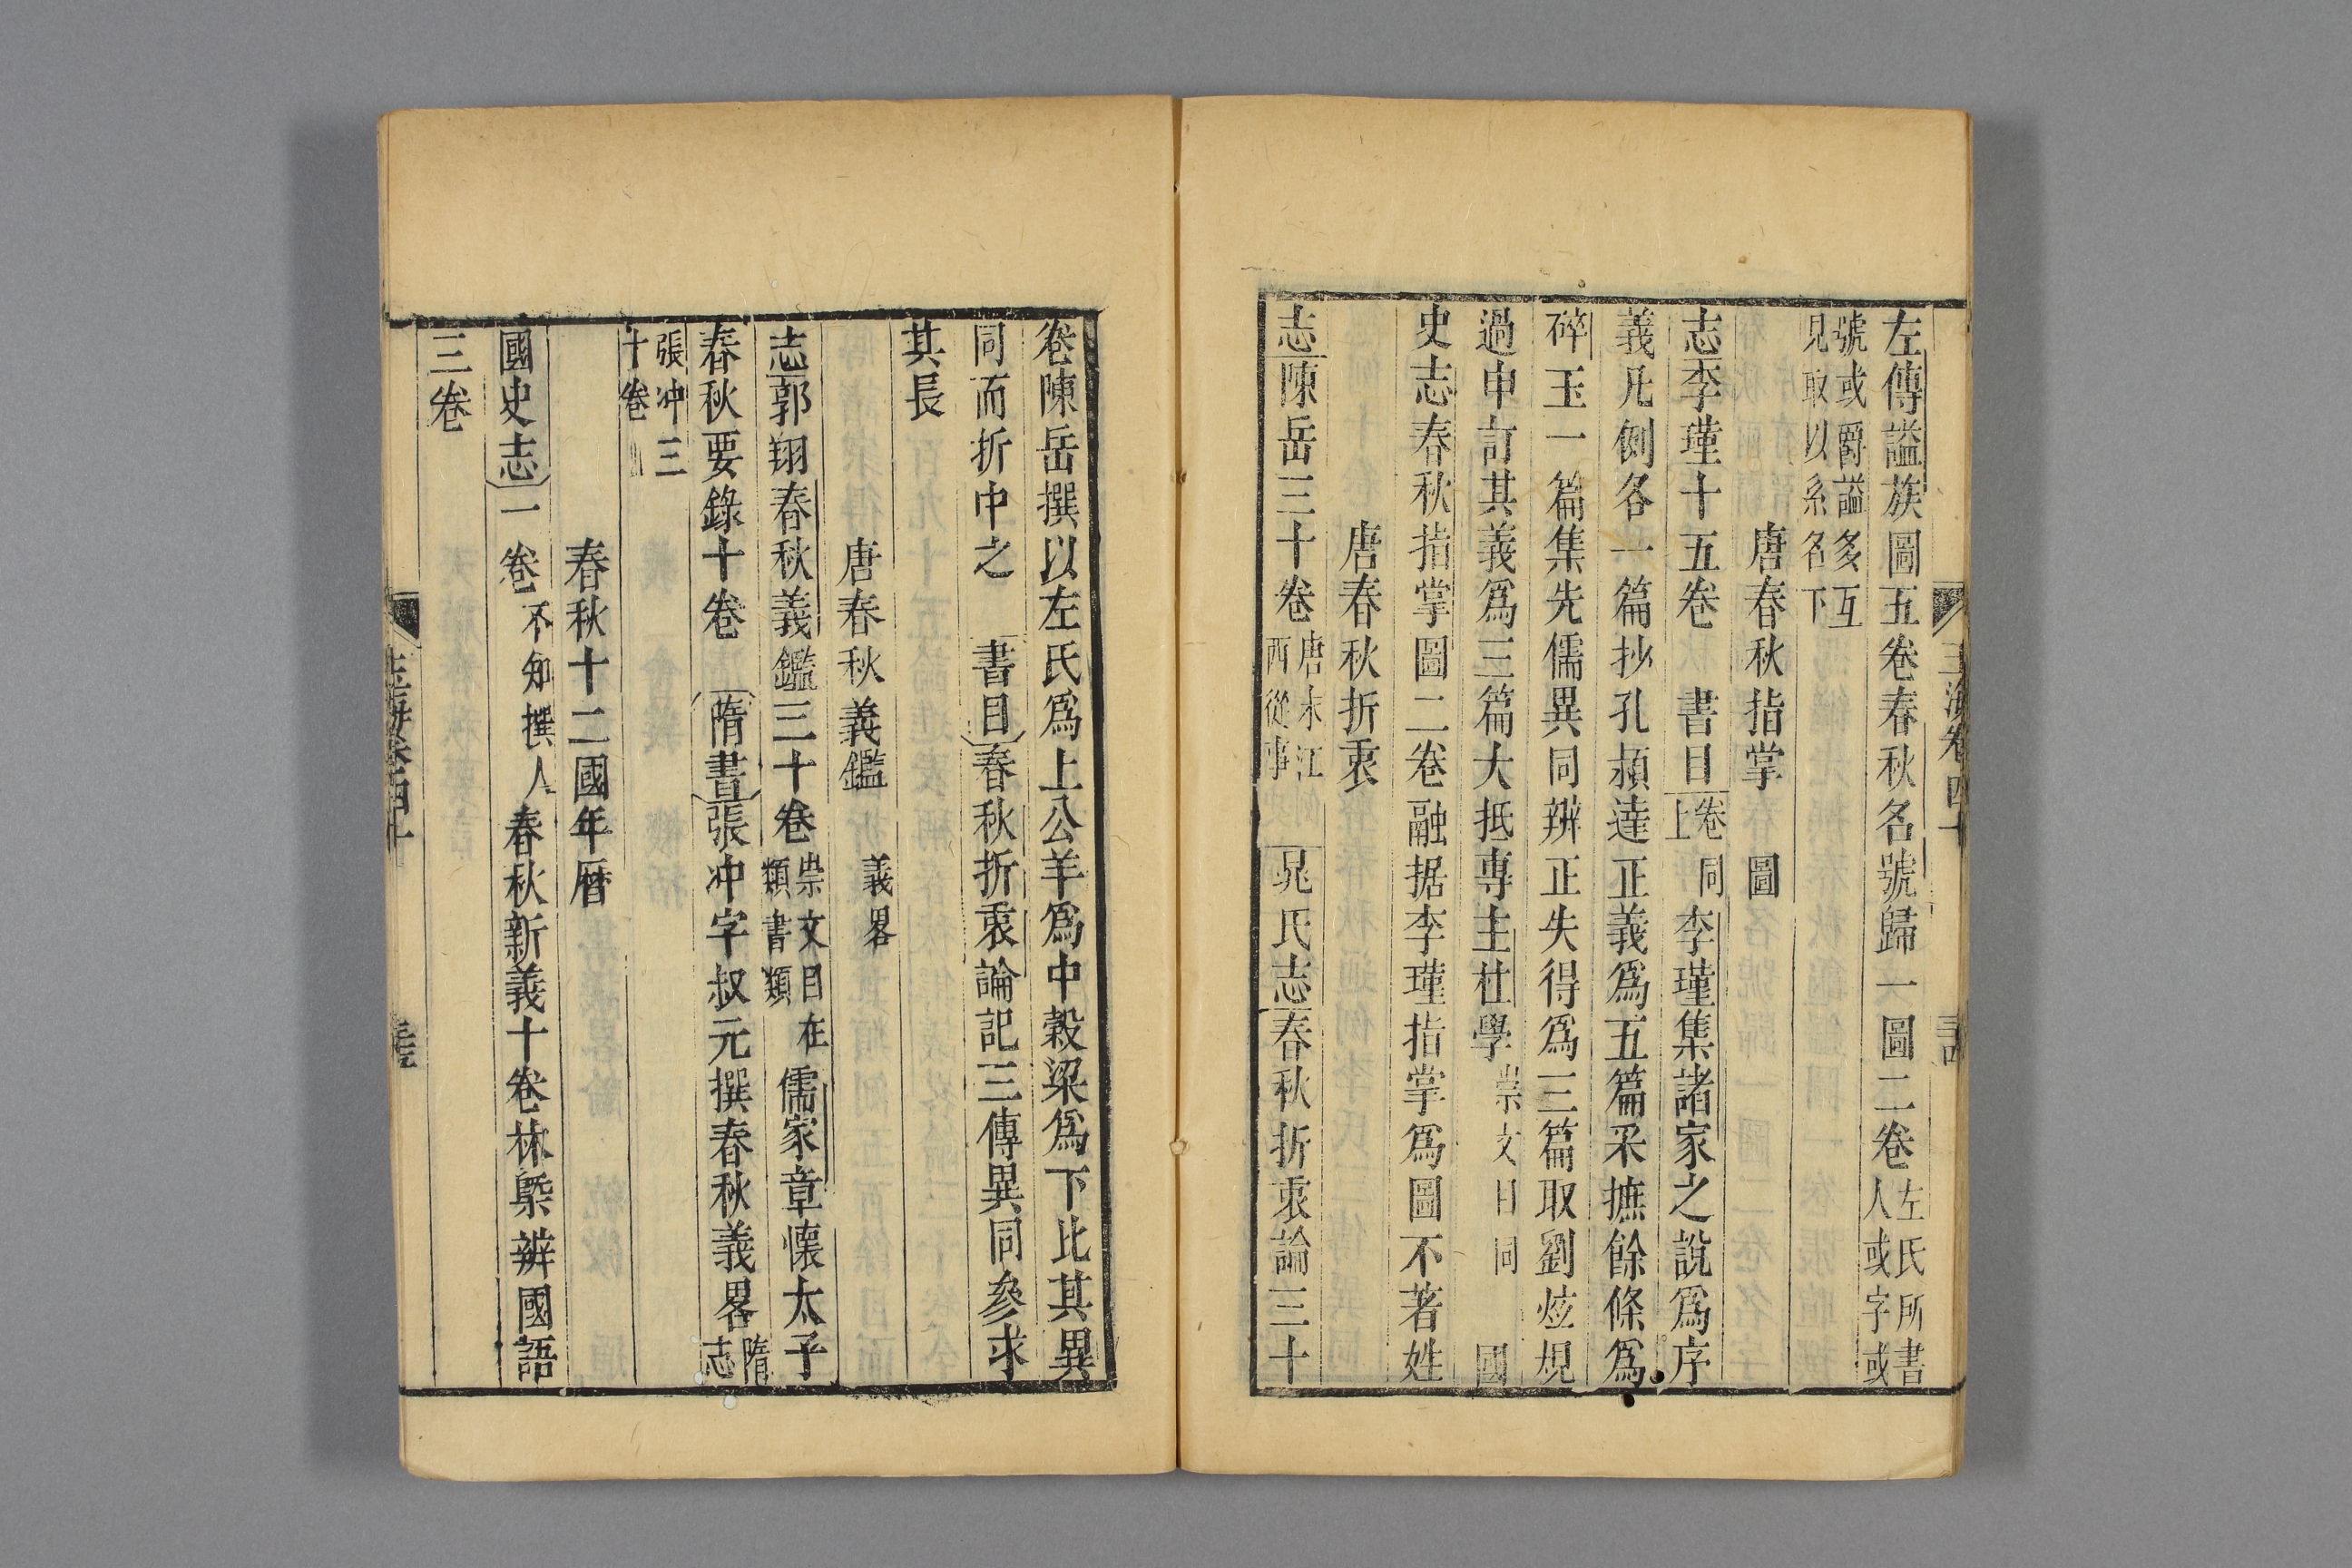 左傳謚族圖五卷春秋名號歸一圖二卷左氏所書人或字或
號或爵謚多互見取以系名下
唐春秋指掌　圖
志李瑾十五卷　書目卷同上李瑾集諸家之說爲序
義凡例各一篇抄孔頴達正義爲五篇采摭餘條爲
碎玉一篇集先儒異同辨正失得爲三篇取劉炫規
過申訂其義爲三篇大抵專主杜學崇文目同　國
史志春秋指掌圖二卷融据李瑾指掌爲圖不著姓
唐春秋折衷
志陳岳三十卷唐末江西從事　晁氏志春秋折衷論三十
卷陳岳撰以左氏爲上公羊爲中穀梁爲下比其異
同而折中之　書目春秋折衷論記三傳異同叅求
其長
唐春秋義鑑　義畧
志郭翔春秋義鑑三十卷崇文目在類書類儒家章懷太子
春秋要錄十卷　隋書張冲字叔元撰春秋義畧隋志
張冲三十卷
春秋十二國年曆
國史志一卷不知撰人春秋新義十卷林槩辨國語
三卷